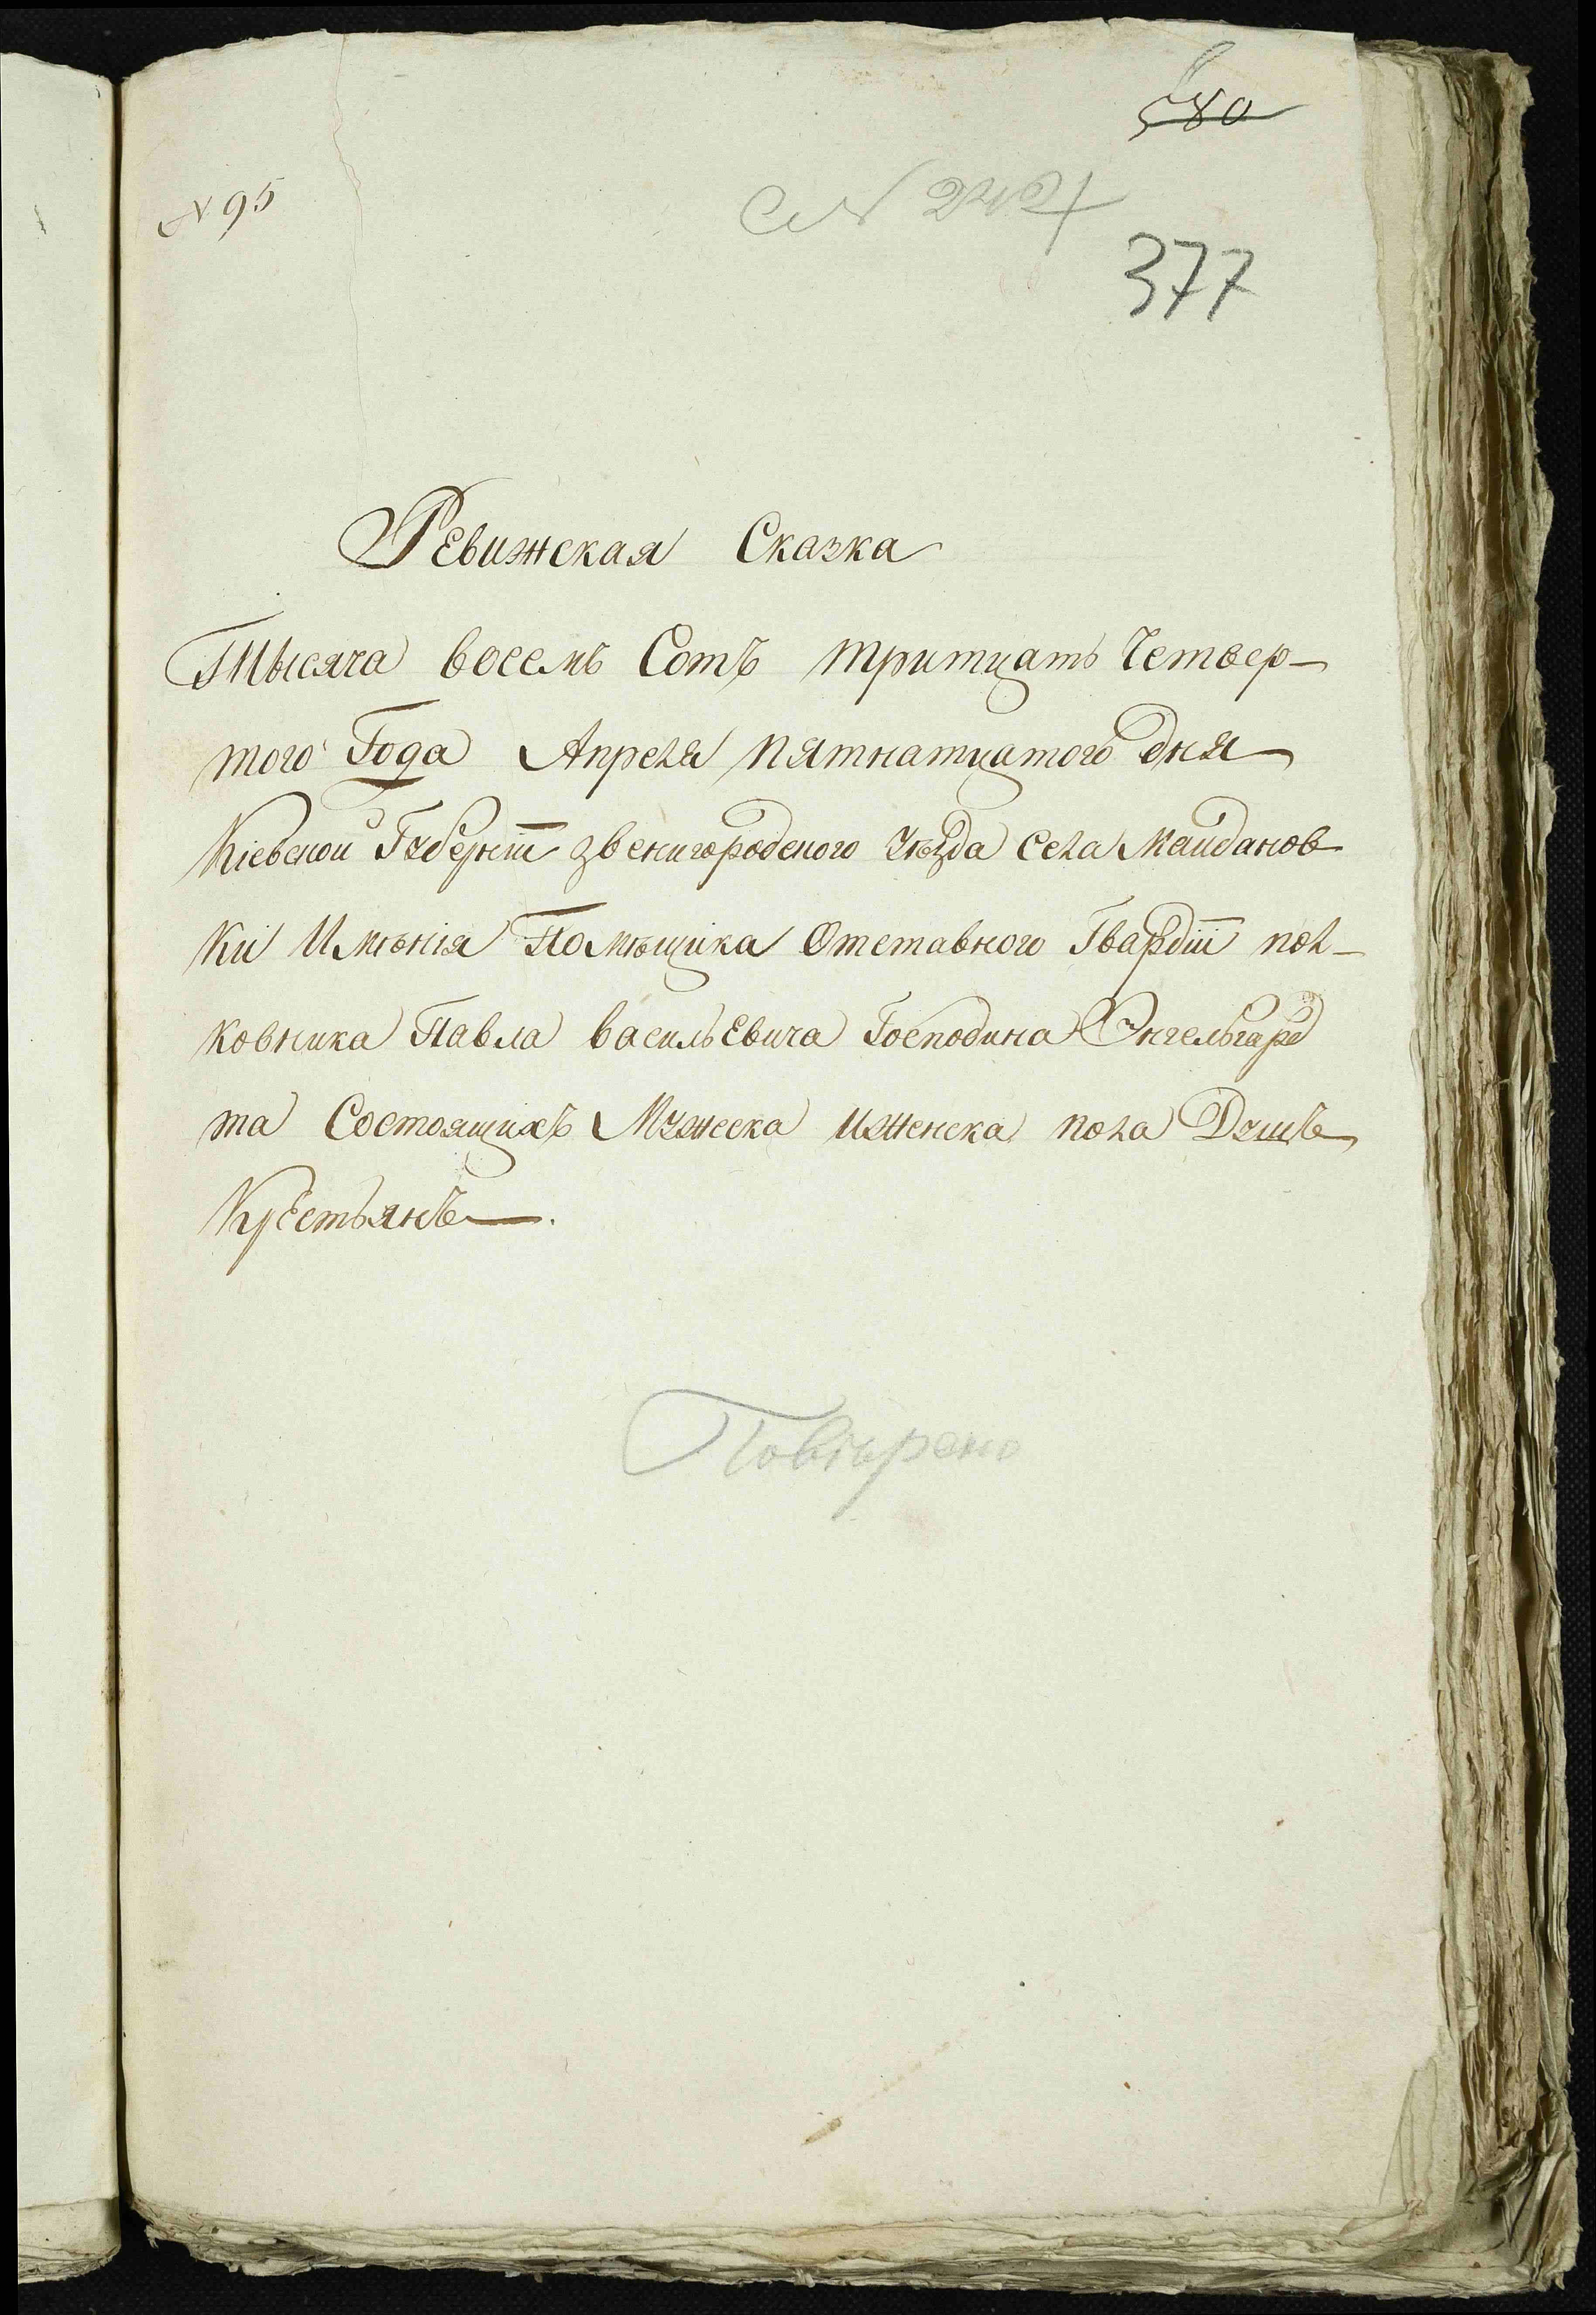 580
№ 95
377
Ревижская Сказка
Тысяча восемъ Сотъ тритцать Четвер-
того Года Апреля пятнатцатого дня
Кіевской Губерніи звенигородского уѣзда села Майданов
ки Имѣнія Помѣщика Отставного Гвардіи пол-
ковника Павла васильЕвича Господина Энгельгард
та Состоящихъ Мужеска иженска пола Душъ
КрЕстьянъ.
Повѣрено